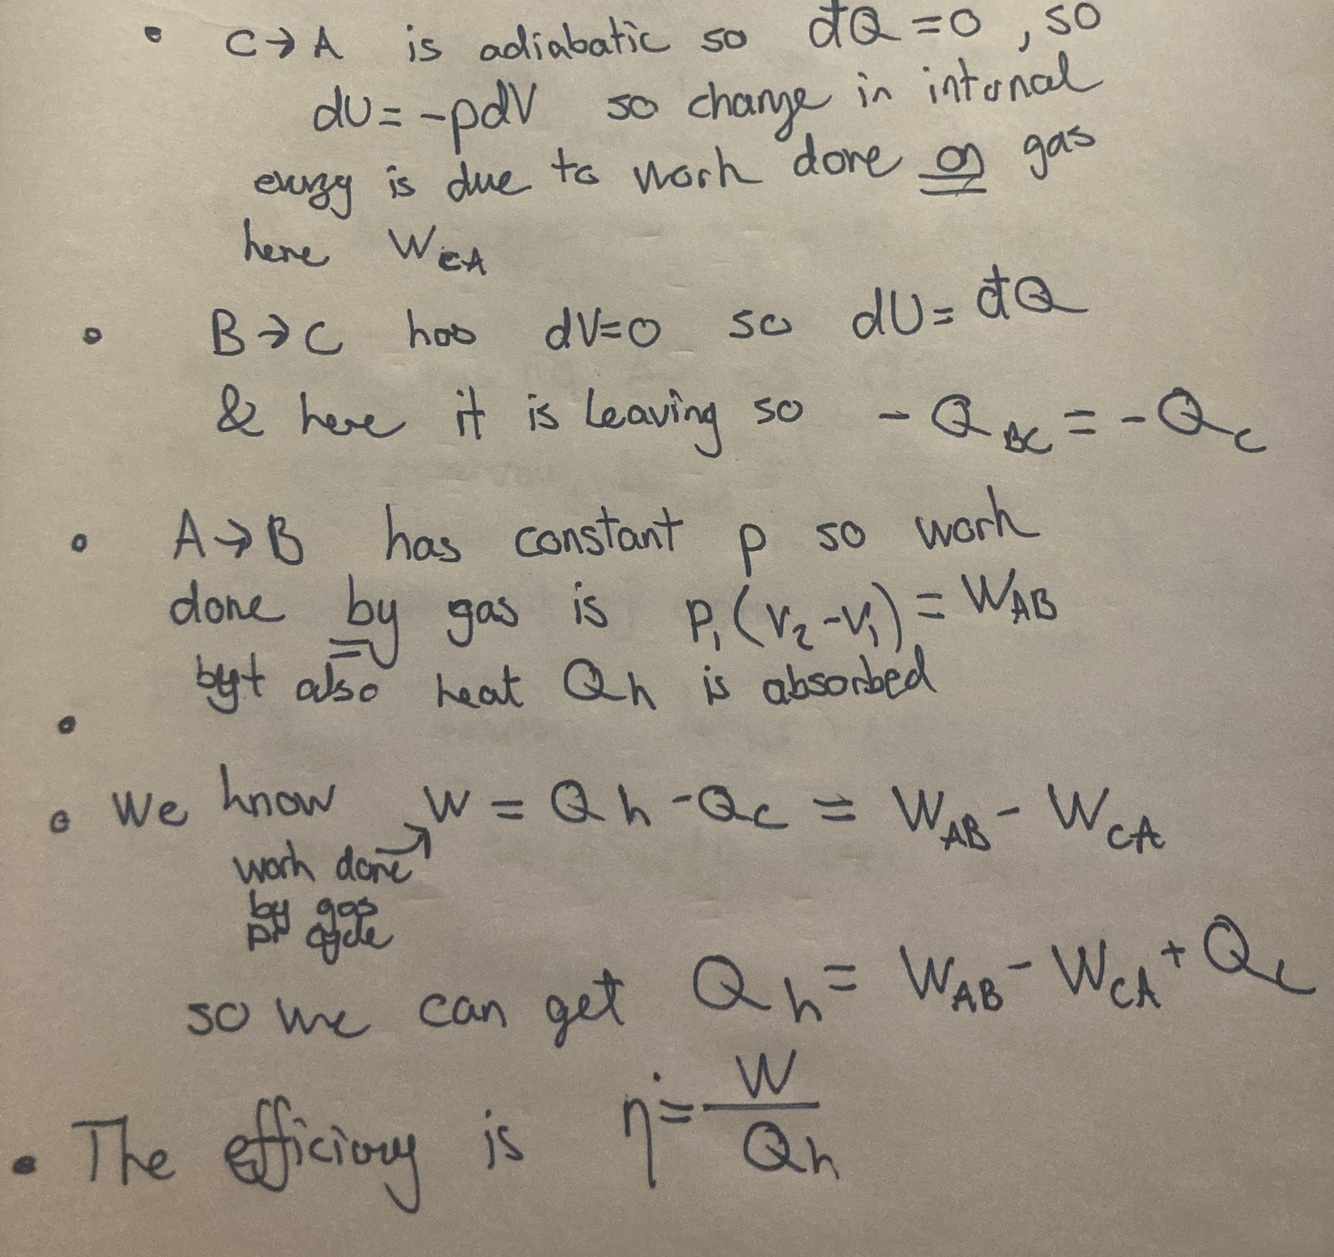 • C→A is adiabatic so đQ = 0, so
dU = -pdV so change in internal
energy is due to work done on gas
here W_CA
• B→C has dV=0 so dU = đQ
& here it is leaving so -Q_BC = -Q_C
• A→B has constant p so work
done by gas is P₁(V₂-V₁) = W_AB
byt also heat Qh is absorbed
•
• We know W = Qh - Qc = W_AB - W_CA
work done
by gas
pr cycle
so we can get Qh = W_AB - W_CA + Qc
• The efficiency is η = W/Qh